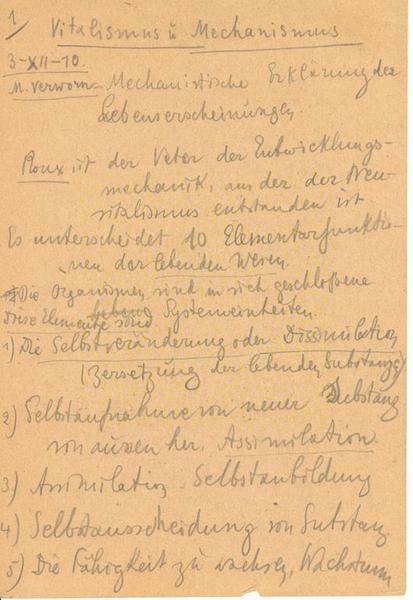 1/ Vitalismus u Mechanismus
3-XII-10.
M. Verworn - Mechanistische Erklärung der
Lebenserscheinungen.
Roux ist der Vater der Entwicklungs-
mechanik, aus der der Neu-
vitalismus entstanden ist.
Es unterscheidet 10 Elementarfunktio-
nen der lebenden Wesen.
Die Organismen sind in sich geschloßene
diese Elemente sind Systemeinheiten.
1) Die Selbstveränderung oder Dissimilation
(Zersetzung der lebenden Substanz)
2) Selbstaufnahme von neuer Substanz
von aussen her, Assimilation.
3) Assimilation. Selbstanbildung
4) Selbstausscheidung von Substanz
5) Die Fähigkeit zu wachsen, Wachstum